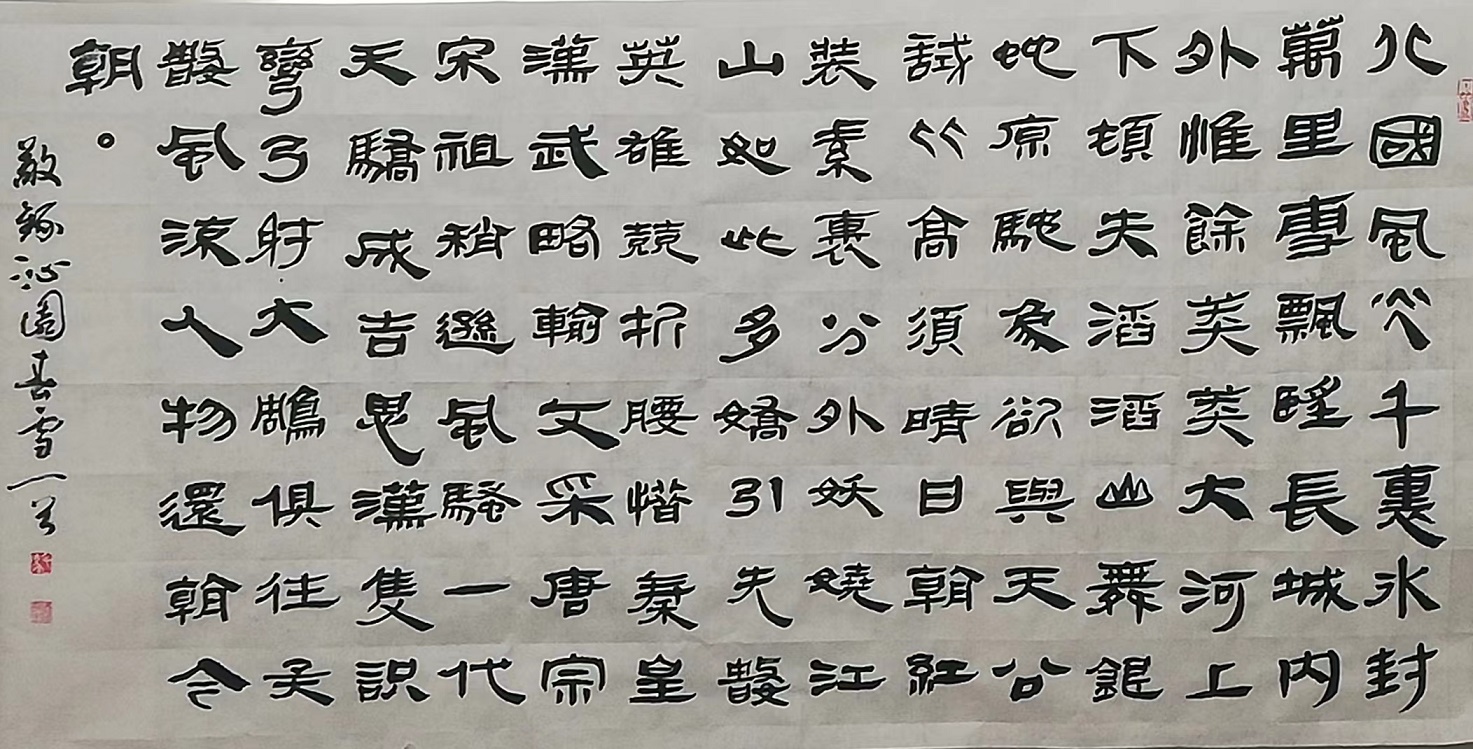 北國風光千裏冰封
萬里雪飄望長城内
外惟餘莽莽大河上
下頓失滔滔山舞銀
蛇原馳象欲與天公
試比高須晴日看紅
裝素裹分外妖嬈江
山如此多嬌引无數
英雄競折腰惜秦皇
漢武略輸文采唐宗
宋祖稍遜風騷一代
天驕成吉思漢隻識
彎弓射大鵰俱往矣
數風流人物還看今
朝。
敬錄沁園春雪一首